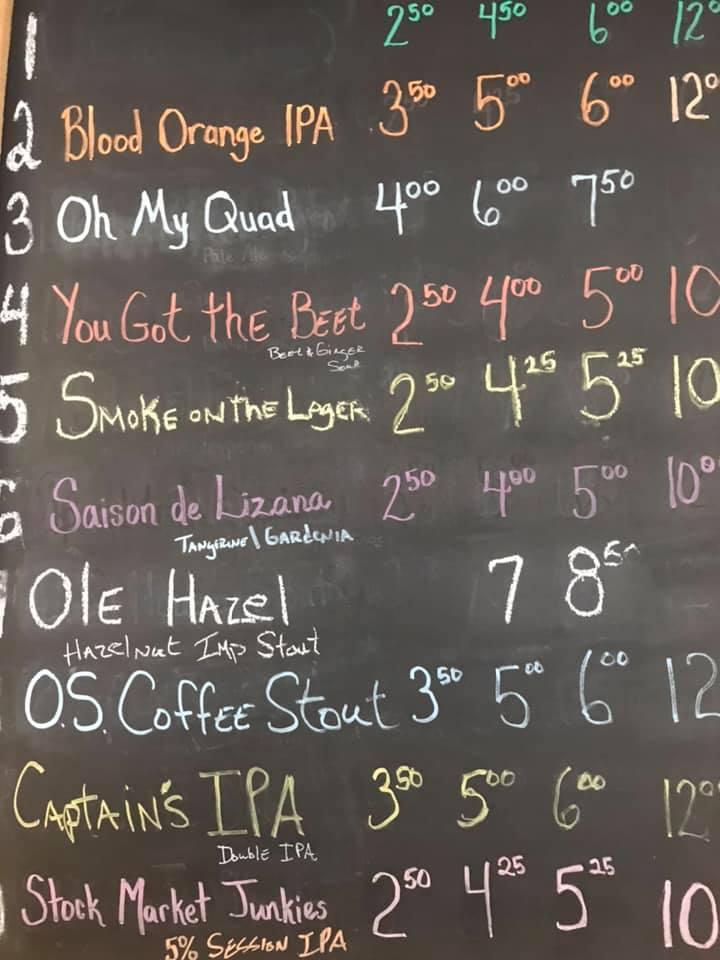 1 2⁵⁰ 4⁵⁰ 6⁰⁰ 12⁰
2 Blood Orange IPA 3⁵⁰ 5⁰⁰ 6⁰⁰ 12⁰
3 Oh My Quad 4⁰⁰ 6⁰⁰ 7⁵⁰
Pale Ale
4 You Got the Beet 2⁵⁰ 4⁰⁰ 5⁰⁰ 10
Beet & Ginger
5 Smoke on the Lager 2⁵⁰ 4²⁵ 5²⁵ 10
6 Saison de Lizana 2⁵⁰ 4⁰⁰ 5⁰⁰ 10⁰
Tangerine \ Gardenia
Ole Hazel 7 8⁵⁰
Hazelnut Imp Stout
O.S. Coffee Stout 3⁵⁰ 5⁰⁰ 6⁰⁰ 12
Captain's IPA 3⁵⁰ 5⁰⁰ 6⁰⁰ 12⁰
Double IPA
Stock Market Junkies 2⁵⁰ 4²⁵ 5²⁵ 10
5% Session IPA